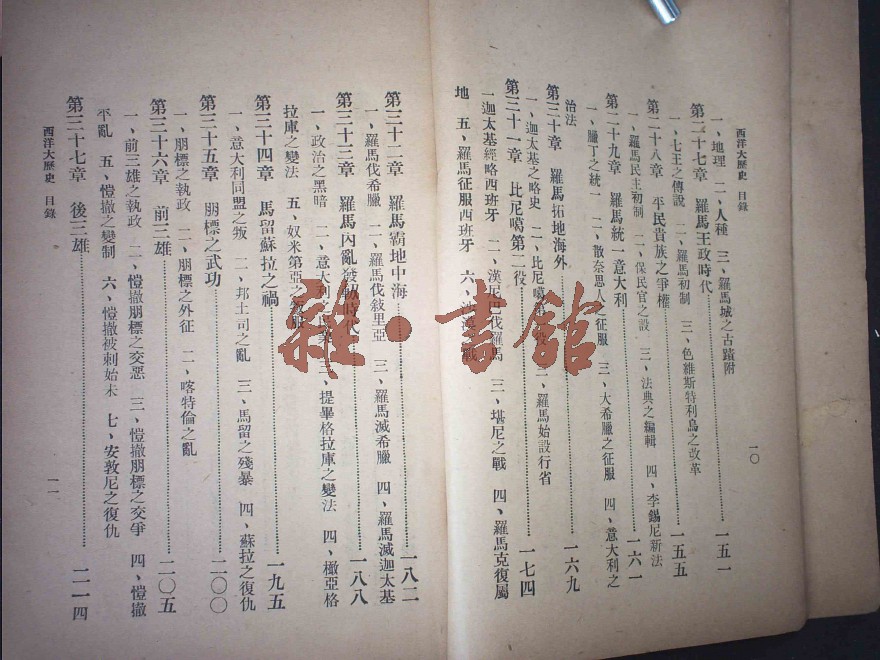 西洋大歷史 目錄
一〇
一、地理 二、人種 三、羅馬城之古蹟附
第二十七章 羅馬王政時代 一五一
一、七王之傳說 二、羅馬初制 三、色維斯特利烏之改革
第二十八章 平民貴族之爭權 一五五
一、羅馬民主初制 二、保民官之設 三、法典之編輯 四、李錫尼新法
第二十九章 羅馬統一意大利 一六一
一、臘丁之統一 二、散奈思人之征服 三、大希臘之征服 四、意大利之
治法
第三十章 羅馬拓地海外 一六九
一、迦太基之略史 二、比尼噶 三、羅馬始設行省
第三十一章 比尼噶第二役 一七四
一迦太基經略西班牙 二、漢尼巴伐羅馬 三、堪尼之戰 四、羅馬克復屬
地 五、羅馬征服西班牙 六、戰
第三十二章 羅馬霸地中海 一八二
一、羅馬伐希臘 二、羅馬伐敍里亞 三、羅馬滅希臘 四、羅馬滅迦太基
第三十三章 羅馬內亂發軔時代 一八八
一、政治之黑暗 二、意大利之 三、提畢格拉庫之變法 四、橄亞格
拉庫之變法 五、奴米第亞之服
第三十四章 馬留蘇拉之禍 一九五
一、意大利同盟之叛 二、邦土司之亂 三、馬留之殘暴 四、蘇拉之復仇
第三十五章 朋標之武功 二〇〇
一、朋標之執政 二、朋標之外征 二、喀特倫之亂
第三十六章 前三雄 二〇五
一、前三雄之執政 二、愷撤朋標之交惡 三、愷撤朋標之交爭 四、愷撤
平亂 五、愷撤之變制 六、愷撤被刺始末 七、安敦尼之復仇
第三十七章 後三雄 二一四
西洋大歷史 目錄
一一
雜·書館